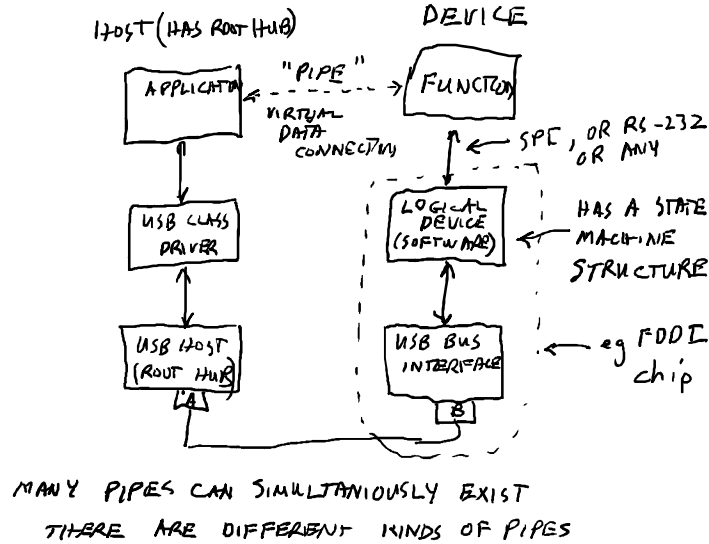 HOST (HAS ROOT HUB)
DEVICE
APPLICATION
"PIPE"
VIRTUAL
DATA
CONNECTION
FUNCTION
SPI, OR RS-232
OR ANY
USB CLASS
DRIVER
LOGICAL
DEVICE
(SOFTWARE)
HAS A STATE
MACHINE
STRUCTURE
USB HOST
(ROUT HUB)
A
USB BUS
INTERFACE
B
eg FDDI
chip
MANY PIPES CAN SIMULTANIOUSLY EXIST
THERE ARE DIFFERENT KINDS OF PIPES